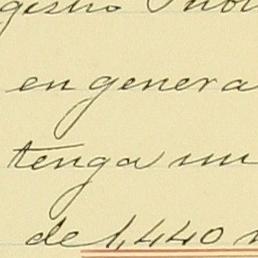 gistro Públ
en genera
tenga un
de 1,440